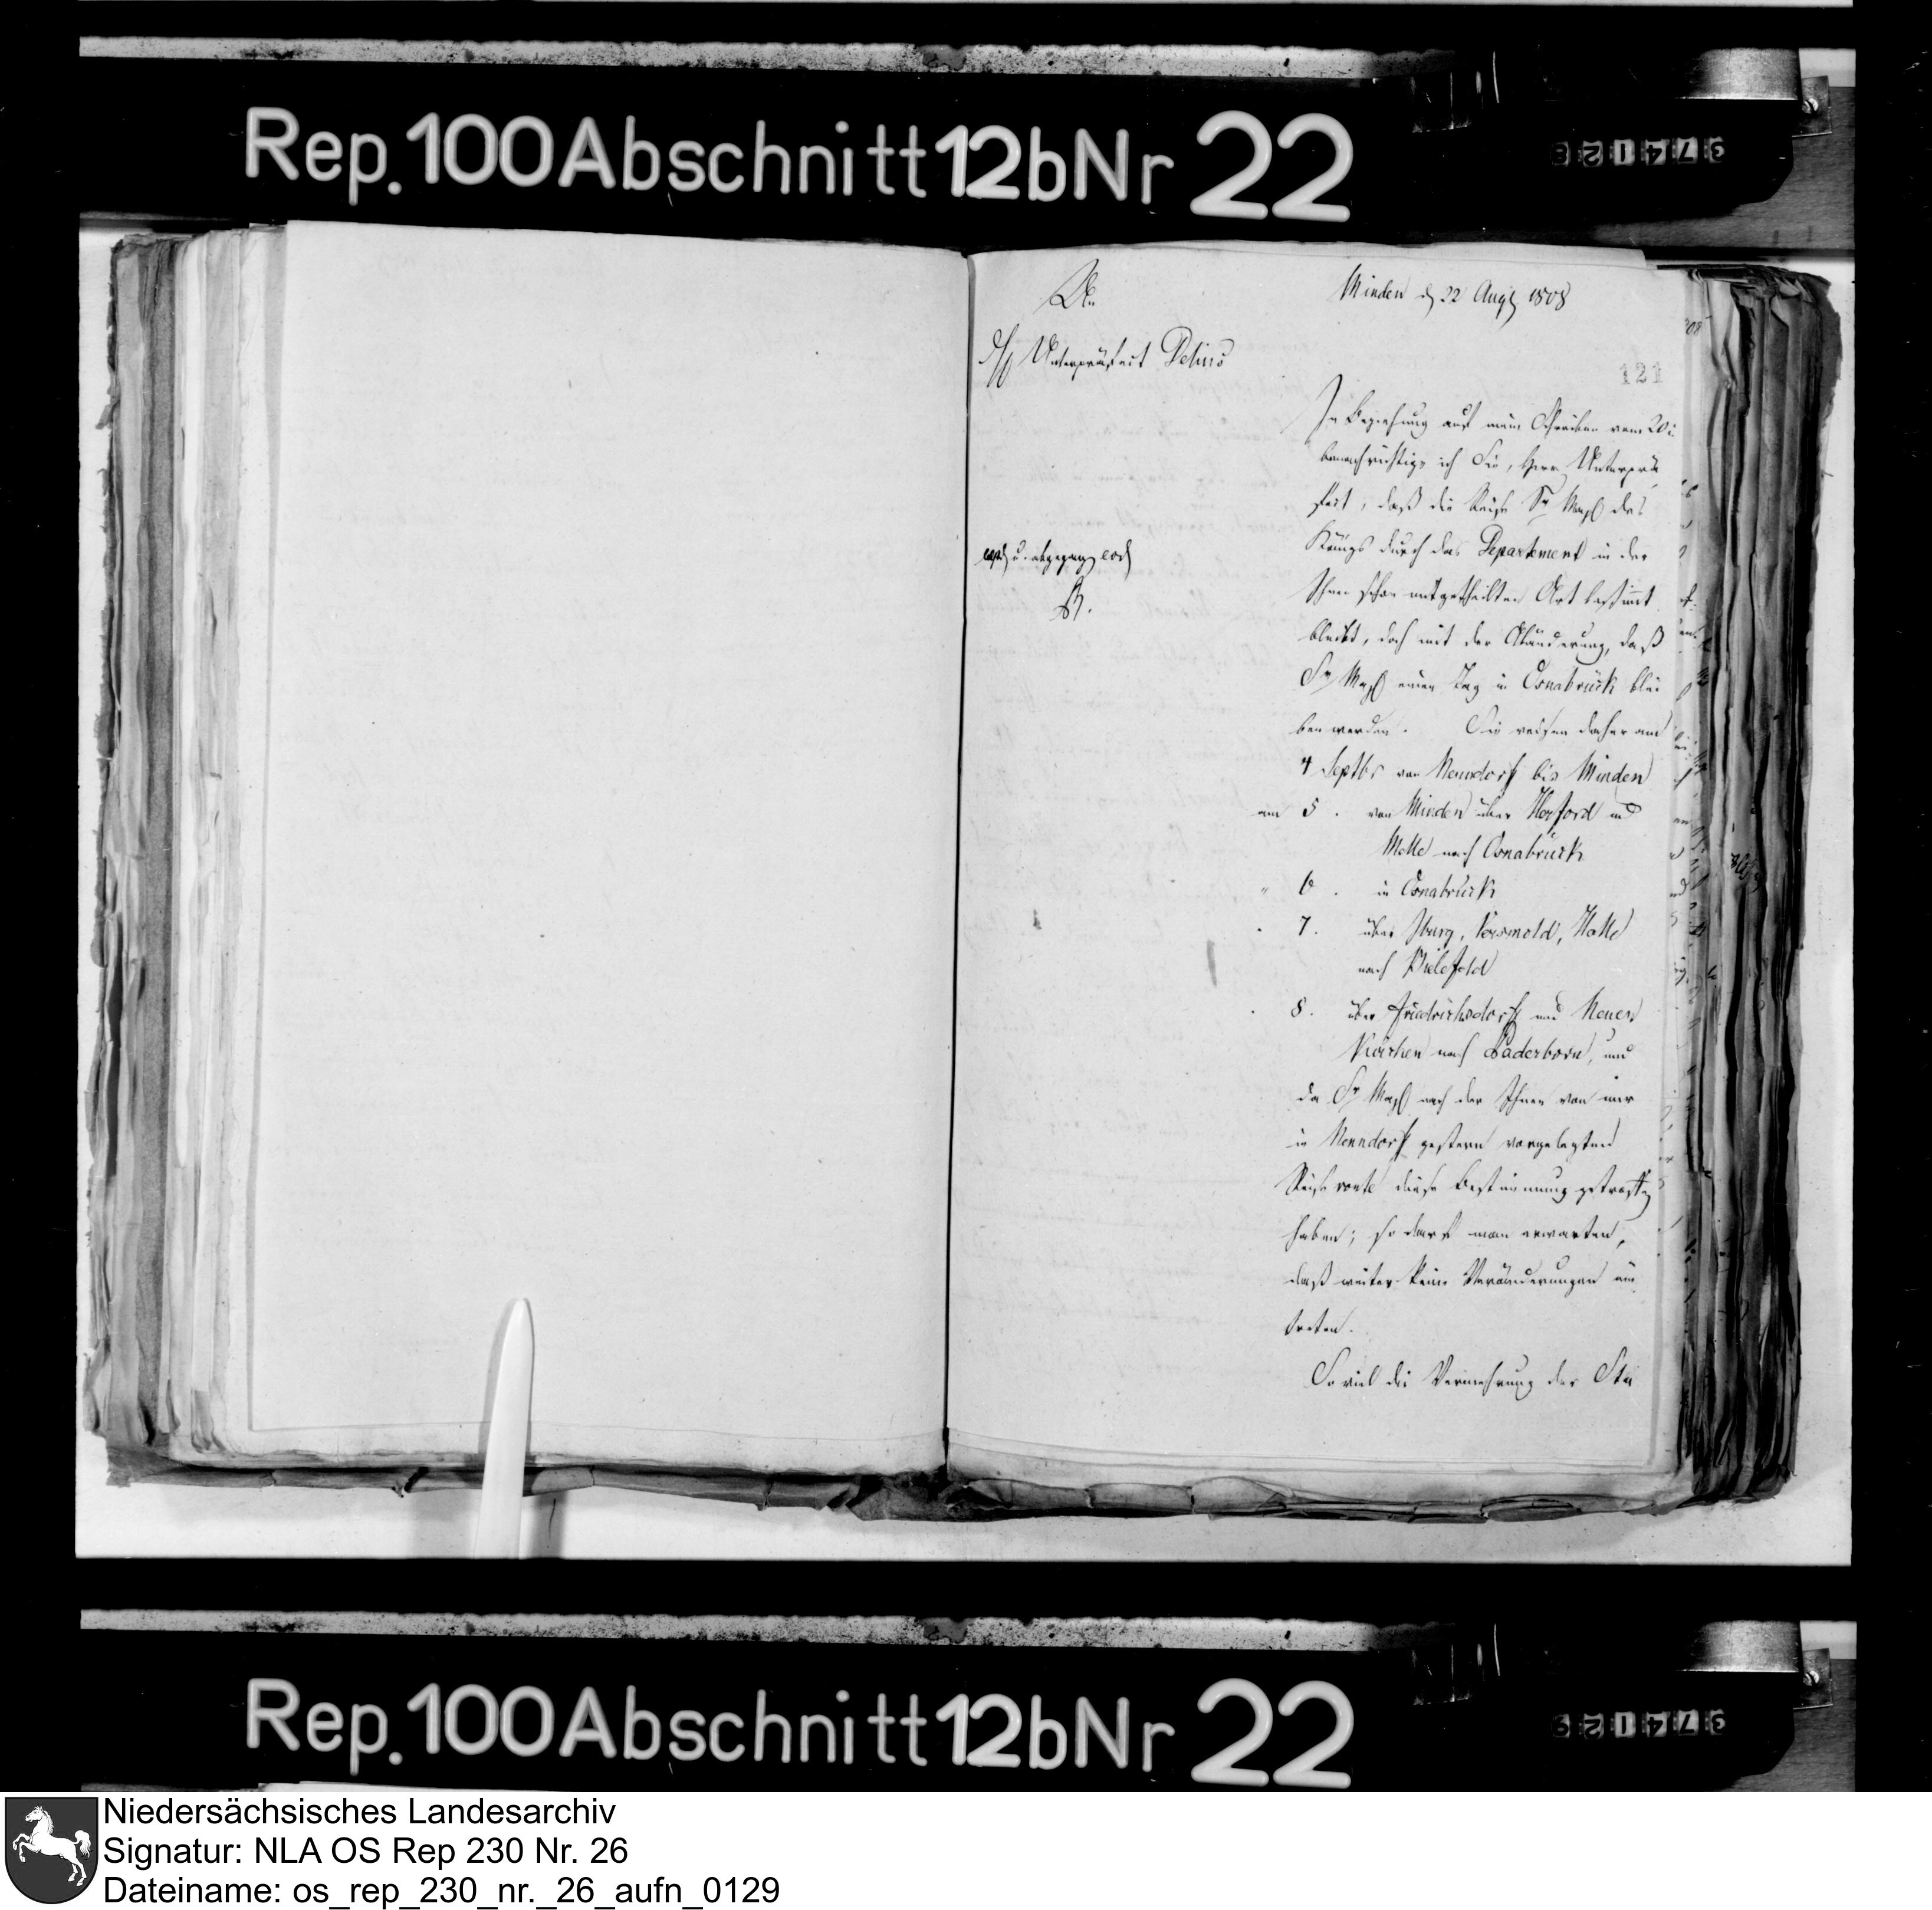 Rep. 100 Abschnitt 12b Nr 22
374128
An
H Unterpräfect Delius
Minden d 22 Augs 1808
121
In Beziehung auf mein Schreiben vom 20
benachrichtige ich Sie, Herr Unterprä
fect, daß die Reise Sr Maj des
Königs durch das Departement in der
Ihnen schon mitgetheilten Art bestimmt
bleibt, doch mit der Abänderung, daß
Se Maj einen Tag in Osnabrück blei
ben werden. Sie reisen daher am
4 Septbr von Nenndorf bis Minden
am 5. von Minden über Herford und
Melle nach Osnabrück
" 6. in Osnabrück
7. über Iburg, Versmold, Halle
nach Bielefeld
8. über Friedrichsdorf und Neuen
Kirchen nach Paderborn, und
da Se Maj nach der Ihnen von mir
in Nenndorf gestern vorgelegten
Reiseroute diese Bestimmung getroffen
haben; so darf man erwarten,
daß weiter keine Veränderungen ein
treten.
So viel die Vermehrung der
u. abgegang eod
Rep. 100 Abschnitt 12b Nr 22
374129
Niedersächsisches Landesarchiv
Signatur: NLA OS Rep 230 Nr. 26
Dateiname: os_rep_230_nr._26_aufn_0129